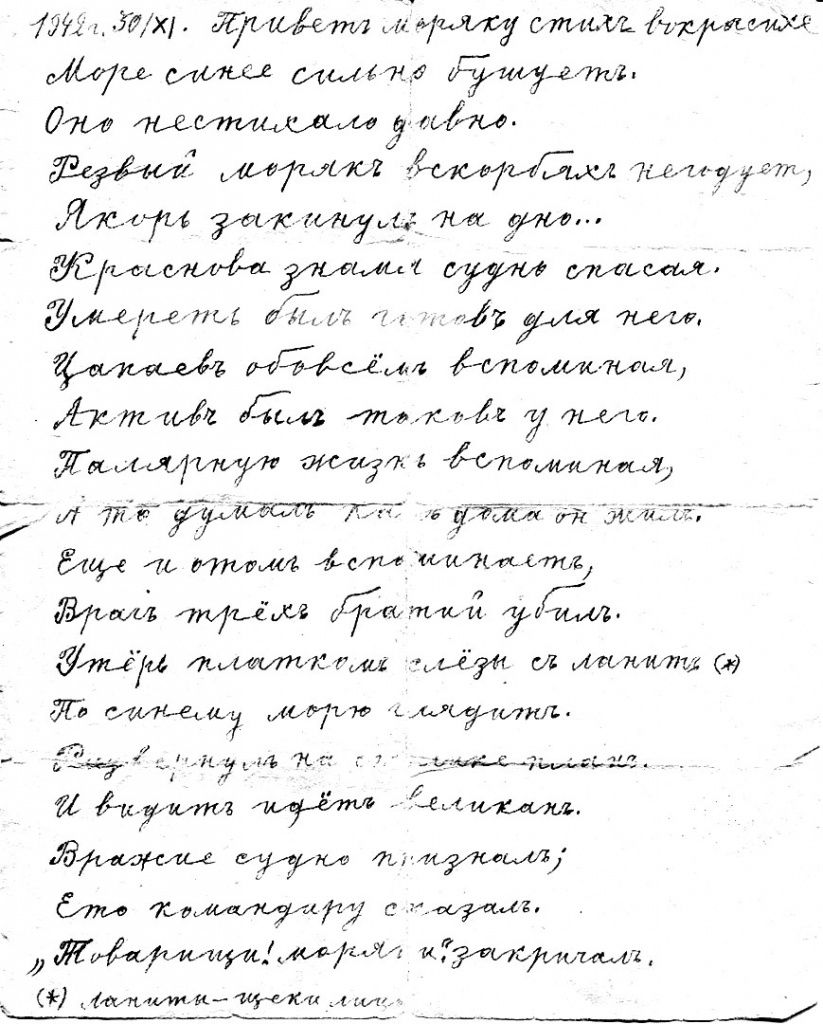 1942 г. 30/XI. Приветъ моряку стихъ вокрысихе
Море синее сильно бушуетъ.
Оно нестихало давно.
Резвый морякъ вскорбяхъ негодует,
Якорь закинулъ на дно...
Краснова знамя судно спасая.
Умереть былъ готовъ для него.
Цакаевъ обовсёмъ вспоминая,
Активъ былъ таковъ у него.
Палярную жизнь вспоминая,
А то думалъ какъ дома он жилъ.
Еще и отомъ вспоминаетъ,
Врагъ трёхъ братий убилъ.
Утёръ платкомъ слёзы съ ланитъ (*)
По синему морю глядитъ.
Развернулъ на планъ.
И видитъ идётъ великанъ.
Вражие судно призналъ;
Ето командиру сказалъ.
„Товарищи! моряки" закричалъ.
(*) ланиты – щеки лица